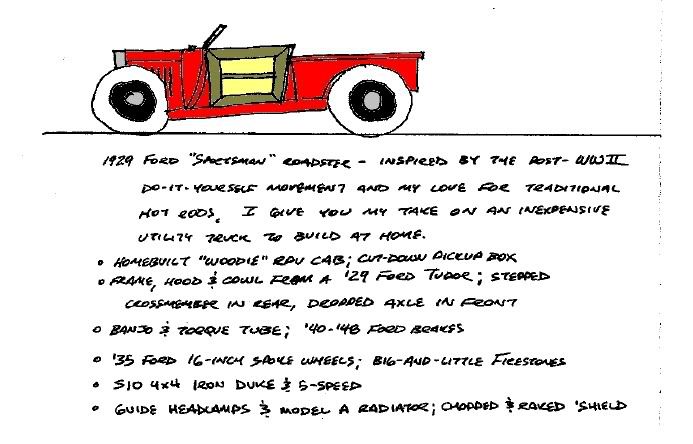 1929 FORD "SPORTSMAN" ROADSTER - INSPIRED BY THE POST-WWII
DO-IT-YOURSELF MOVEMENT AND MY LOVE FOR TRADITIONAL
HOT RODS. I GIVE YOU MY TAKE ON AN INEXPENSIVE
UTILITY TRUCK TO BUILD AT HOME.
• HOMEBUILT "WOODIE" RPU CAB; CUT-DOWN PICKUP BOX
• FRAME, HOOD & COWL FROM A '29 FORD TUDOR; STEPPED
CROSSMEMBER IN REAR, DROPPED AXLE IN FRONT
• BANJO & TORQUE TUBE; '40-'48 FORD BRAKES
• '35 FORD 16-INCH SPOKE WHEELS; BIG-AND-LITTLE FIRESTONES
• S10 4x4 IRON DUKE & 5-SPEED
• GUIDE HEADLAMPS & MODEL A RADIATOR; CHOPPED & RAKED 'SHIELD